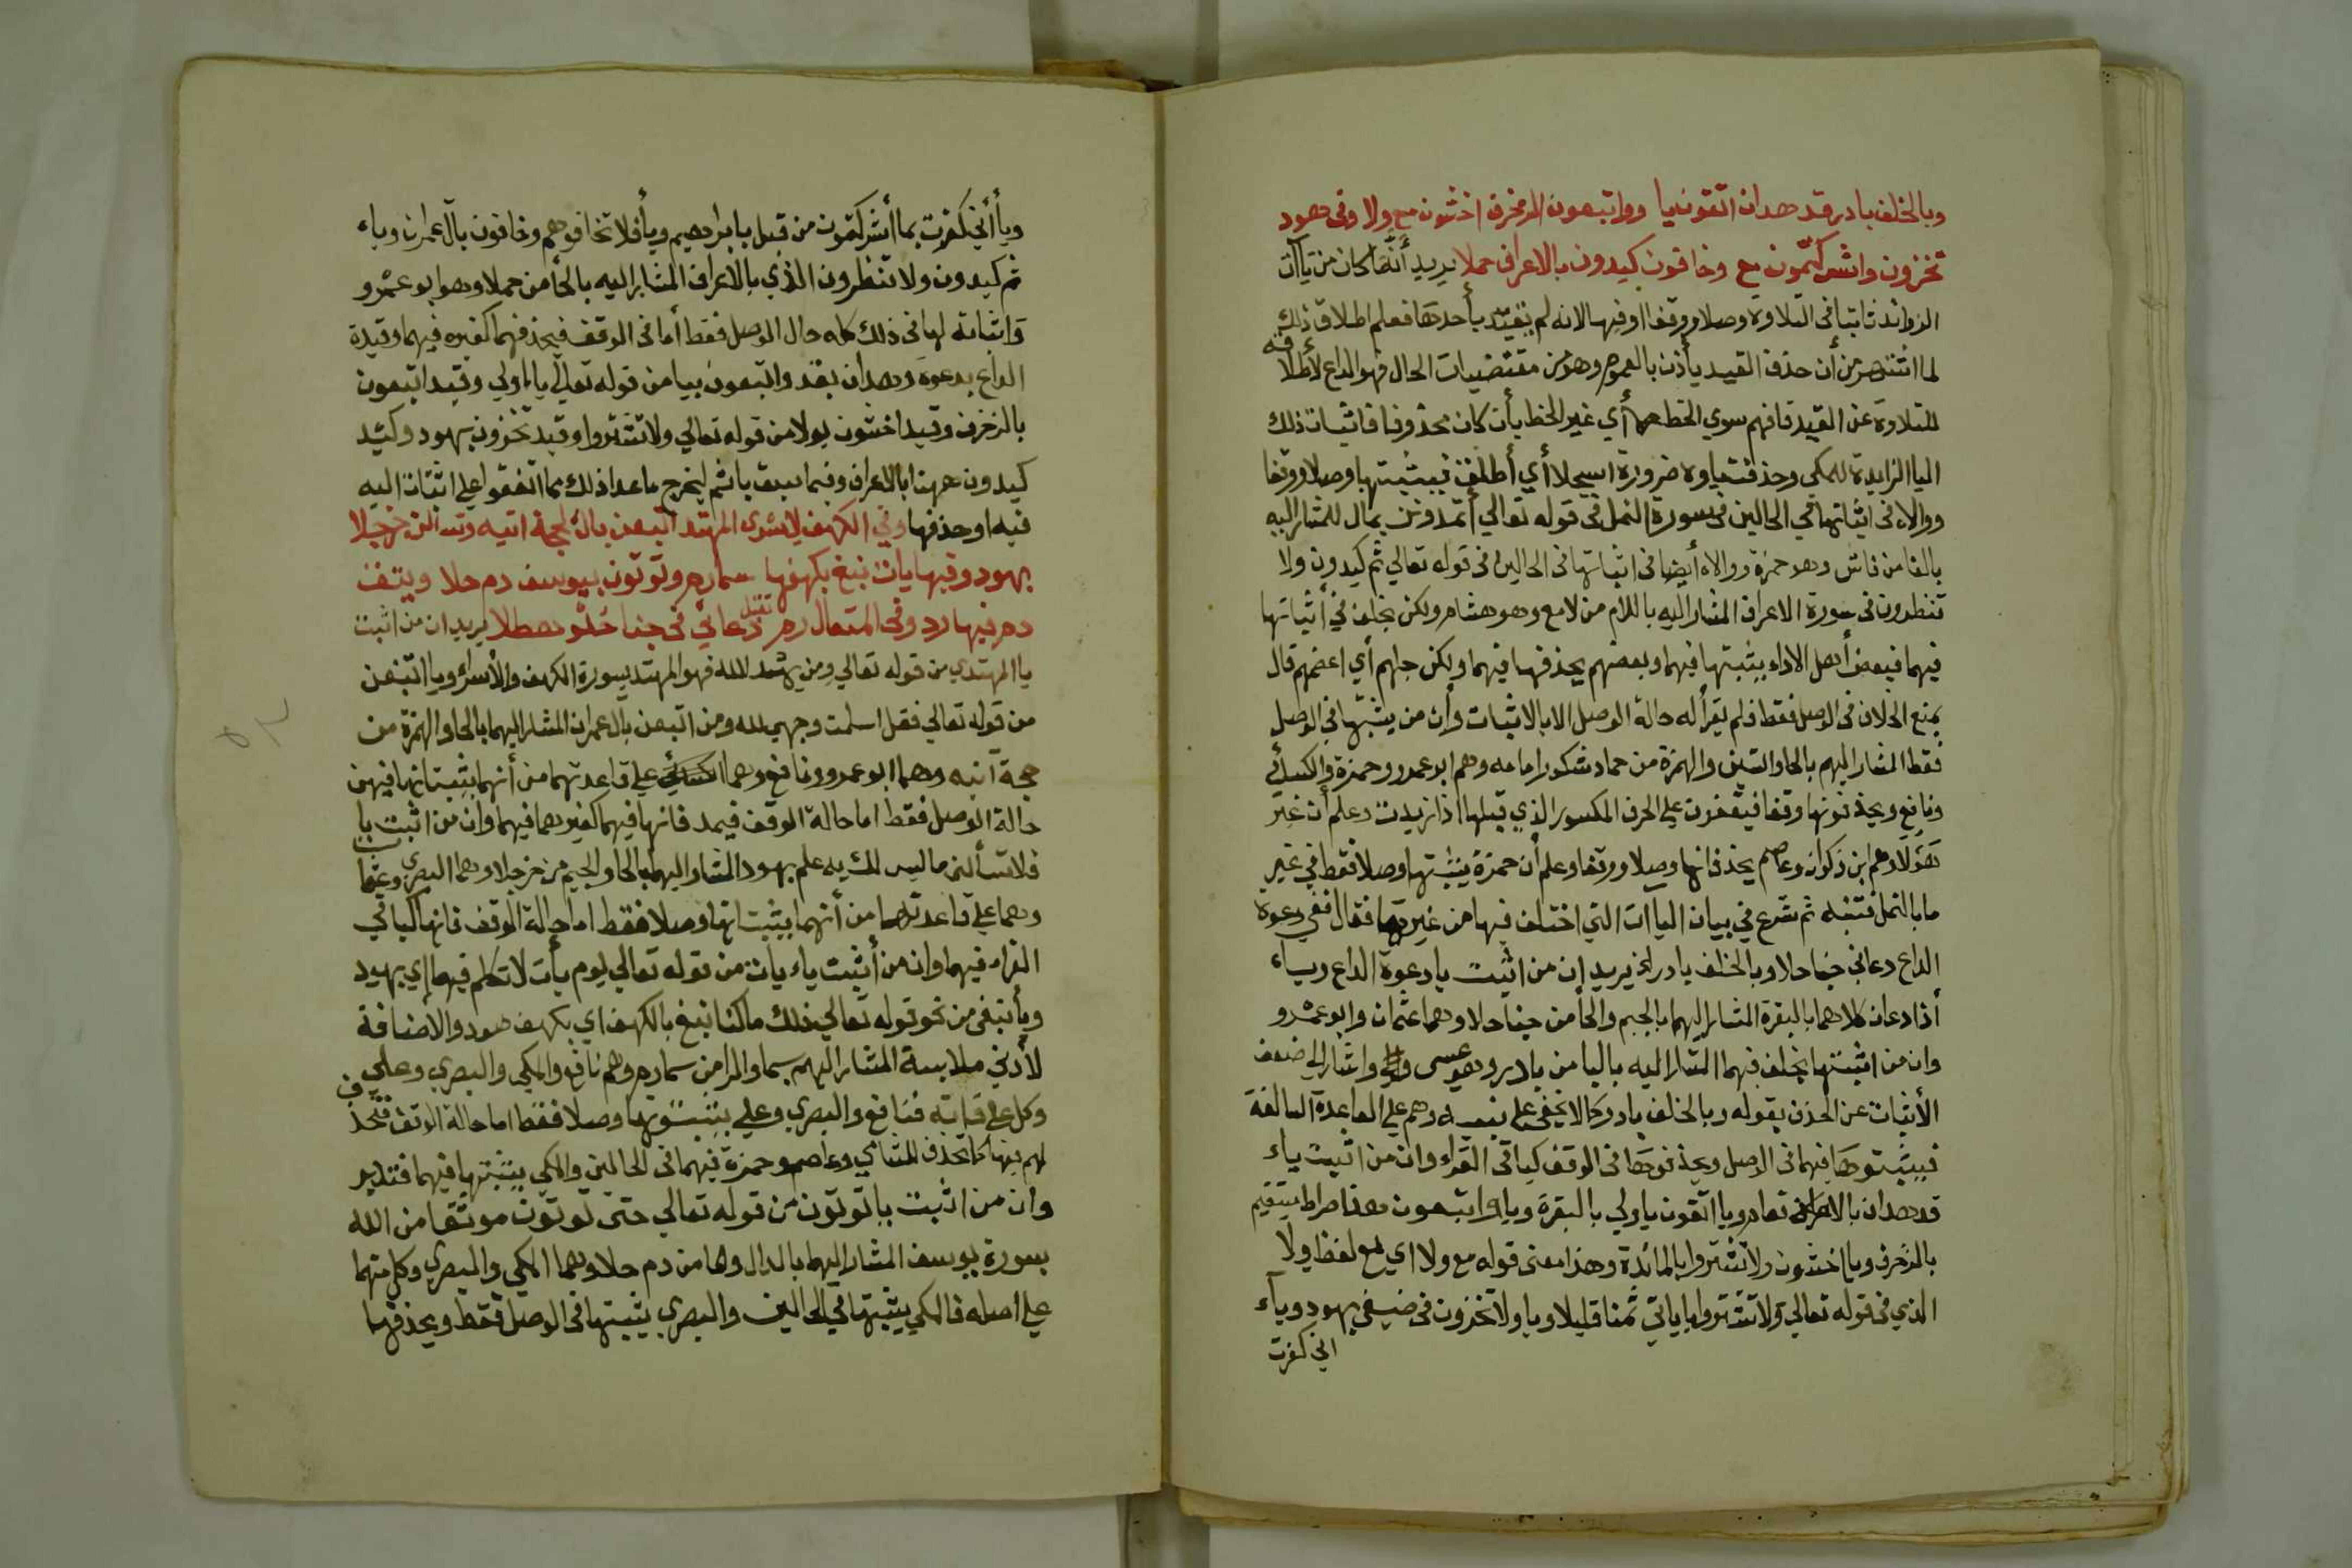 وبالخلف بادر قد هدان اتقون يا وواتبعون الزخرف اخشون مع ولا وفى هود
تخزون واشركتمون مع وخافون كيدون بالاعراف حملا يريد أنما كان من ياآت
الزوائد ثابتا فى التلاوة وصلا ووقفا اوفيها لانه لم يتقيد بأحدها فعلم اطلاق ذلك
لما اشتهر من أن حذف القيد يأذن بالعموم وهو من مقتضيات الحال فهو الداع لأطلاقه
للتلاوة عن القيد فافهم سوي الخط أي غير الخط بأن كان محذوفا فاثبات ذلك
اليا الزايدة للمكي وحذفت ياوه ضرورة اسجلا أي أطلق فيثبتها وصلا ووقفا
ووالاه فى اثباتها في الحالين فى سورة النمل فى قوله تعالي أتمدونن بمال للمشار اليه
بالفا من فاش وهو حمزة ووالاه أيضا فى اثباتها فى الحالين فى قوله تعالي ثم كيدون ولا
تنظرون فى سورة الاعراف المشار اليه باللام من لامع وهو هشام ولكن بخلف في أثباتها
فيهما فبعض أهل الاداء يثبتها فيهما وبعضهم يحذفها فيهما ولكن جلهم أي اعضمهم قال
بمنع الخلاف فى الوصل فقط فلم يقرأ له حالة الوصل الا بالاثبات وأن من يثبتها في الوصل
فقط المشار اليهم بالحا والشين والهمزة من حماد شكور امامه وهم ابو عمرو وحمزة والكسائي
ونافع ويحذفونها وقفا فيقفون علي الحرف المكسور الذي قبلها اذا زيدت وعلم أن غير
هؤلاء وهم ابن ذكوان وعاصم يحذفانها وصلا ووقفا وعلم أن حمزة يثبتها وصلا فقط في غير
ما بالنمل فتنبه ثم شرع في بيان الياآت التي اختلف فيها من غيرهما فقال ففي دعوة
الداع دعاني جنا حلا وبالخلف بادر الخ يريد ان من اثبت يا دعوة الداع وبياء
أذا دعان كلاهما بالبقرة المشار اليهما بالجيم والحا من جنا حلا وهما عثمان وابو عمرو
وان من اثبتها بخلف فيهما المشار اليه بالبا من بادر وهو عيسى واشار الي ضعف
الأثبات عن الحذف بقوله وبالخلف بادر كما لا يخفي علي نبيه وهم علي القاعدة السالفة
فيثبتوها فيهما فى الوصل ويحذفوها فى الوقف كباقى القراء وان من اثبت ياء
قد هدان بالانعام ويا اتقون ياولي بالبقرة ويا واتبعون هذا صراط مستقيم
بالزخرف ويا اخشون ولا تشتروا بالمائدة وهذا معنى قوله مع ولا اي مع لفظ ولا
الذي فى قوله تعالي ولا تشتروا باياتي ثمنا قليلا ويا ولا تخزون فى ضيفي بهود وياء
اني كفرت
ويا أني كفرت بما أشركتمون من قبل بابراهيم ويا فلا تخافوهم وخافون بآل عمران وياء
ثم كيدون ولا تنظرون الذي بالاعراف المشار اليه بالحا من حملا وهو ابو عمرو
واثباته لها فى ذلك كله حال الوصل فقط أما فى الوقف فيحذفهما كغيره فيهما وقيدة
الداع بدعوة وهدان بقد واتقون بيا من قوله تعالي يا اولي وقيد اتبعون
بالزخرف وقيد اخشون بولا من قوله تعالي ولا تشتروا وقيد تخزون بهود وكيد
كيدون ههنا بالاعراف وفيما سبق باثم ليخرج ما عدا ذلك مما اتفقوا علي اثبات اليه
فيه او حذفها وفي الكهف الاسرى المهتد اتبعن بال حجة اتيه وتسألن خرجلا
بهود وفيها يات نبغ بكهفها سمارم وتوتون بيوسف دم حلا ويتق
دم فيها رد وفى المتعال رم تقبل دعائي فى جنا حلو هطلا يريد ان من اثبت
يا المهتدي من قوله تعالي ومن يهد الله فهو المهتد بسورة الكهف والأسراء ويا اتبعن
من قوله تعالي فقل اسلمت وجهي لله ومن اتبعن بآل عمران المشار اليهما بالحا والهمزة من
حجة آتيه وهما ابو عمرو ونافع وهما علي قاعدتهما من أنهما يثبتانها فيهن
حالة الوصل فقط اما حالة الوقف فيحذفانها فيهما كغيرهما فيهما وان من اثبت يا
فلا تسألن ما ليس لك به علم بهود المشار اليهما بالحا والجيم من خرجلا وهما البصري وعثمان
وهما علي قاعدتهما من أنهما يثبتانها وصلا فقط اما حالة الوقف فانها كباقي
القراء فيهما وان من أثبت ياء يات من قوله تعالي يوم يأت لا تكلم فيها اي بهود
ويا نبغى من نحو قوله تعالي ذلك ما كنا نبغ بالكهف اي بكهف هود والأضافة
لأدني ملابسة المشار اليهم بسما والرا من سمارم وهم نافع والمكي والبصري وعلي
وكل علي قاعدته فنافع والبصري وعلي يثبتونها وصلا فقط اما حالة الوقف فتحذف
لهم فيها كما تحذف للشامي وعاصم وحمزة فيهما فى الحالين والمكي يثبتها فيهما فتدبر
وان من اثبت يا توتون من قوله تعالي حتى توتون موثقا من الله
بسورة يوسف المشار اليهما بالدال والحا من دم حلا وهما المكي والبصري وكل منهما
علي أصله فالمكي يثبتها في الحالين والبصري يثبتها فى الوصل فقط ويحذفها